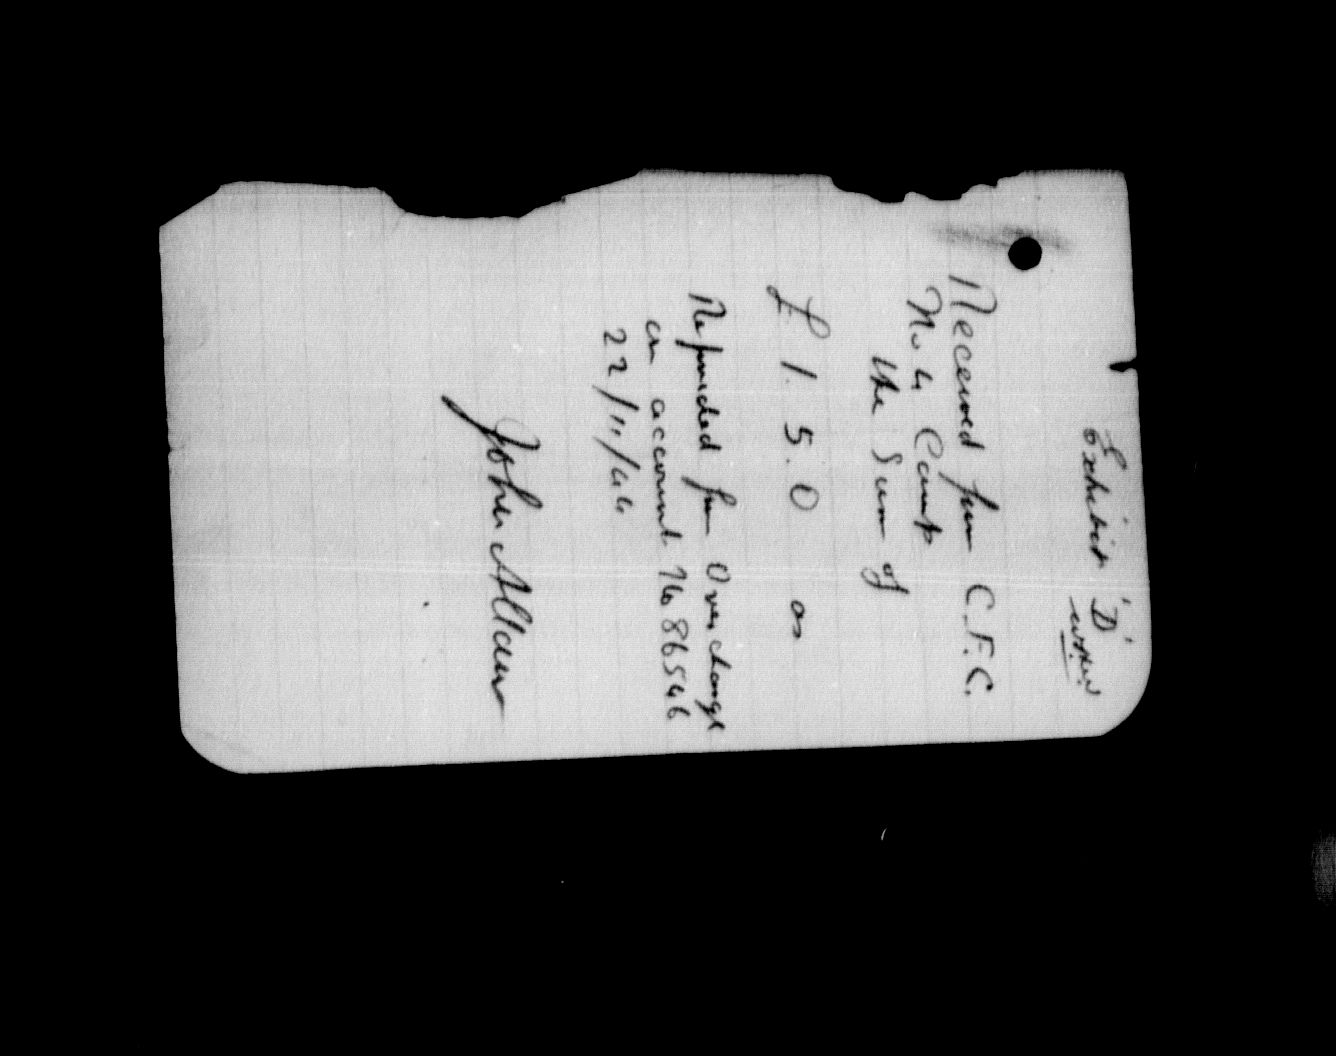 Exhibit 'D'
Received from C.F.C.
No 4 Camp
the Sum of
£ 1. 5. 0 as
Refunded from Overchange
on account 7686546
22/11/44
John Allan